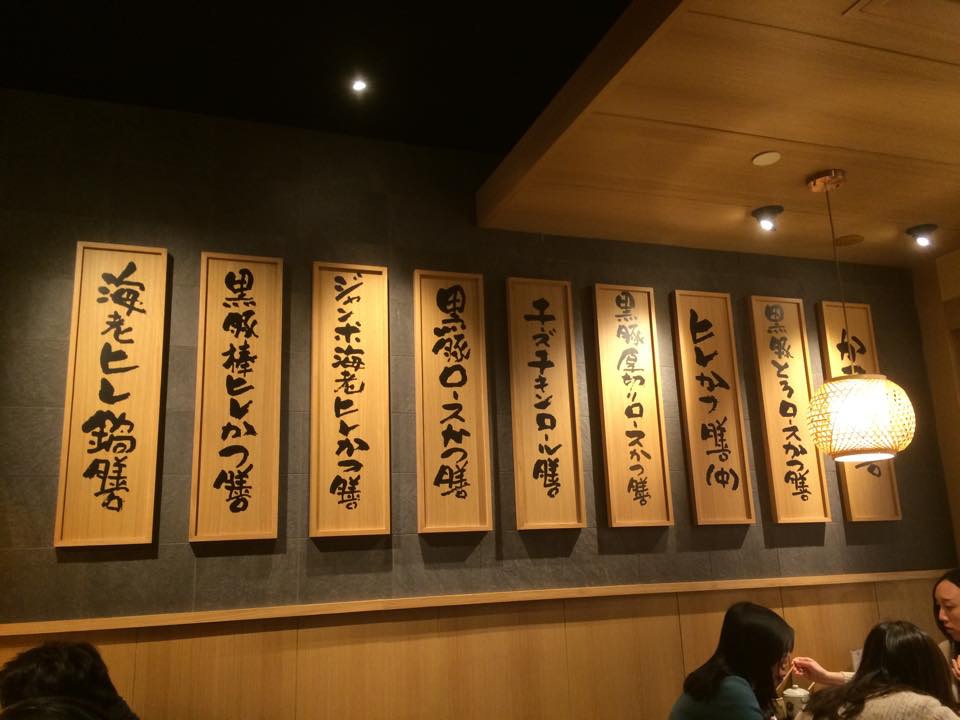 海老ヒレ鍋膳
黒豚棒ヒレかつ膳
ジャンボ海老ヒレかつ膳
黒豚ロースかつ膳
チーズチキンロール膳
黒豚厚切りロースかつ膳
ヒレかつ膳(中)
黒豚とろロースかつ膳
か